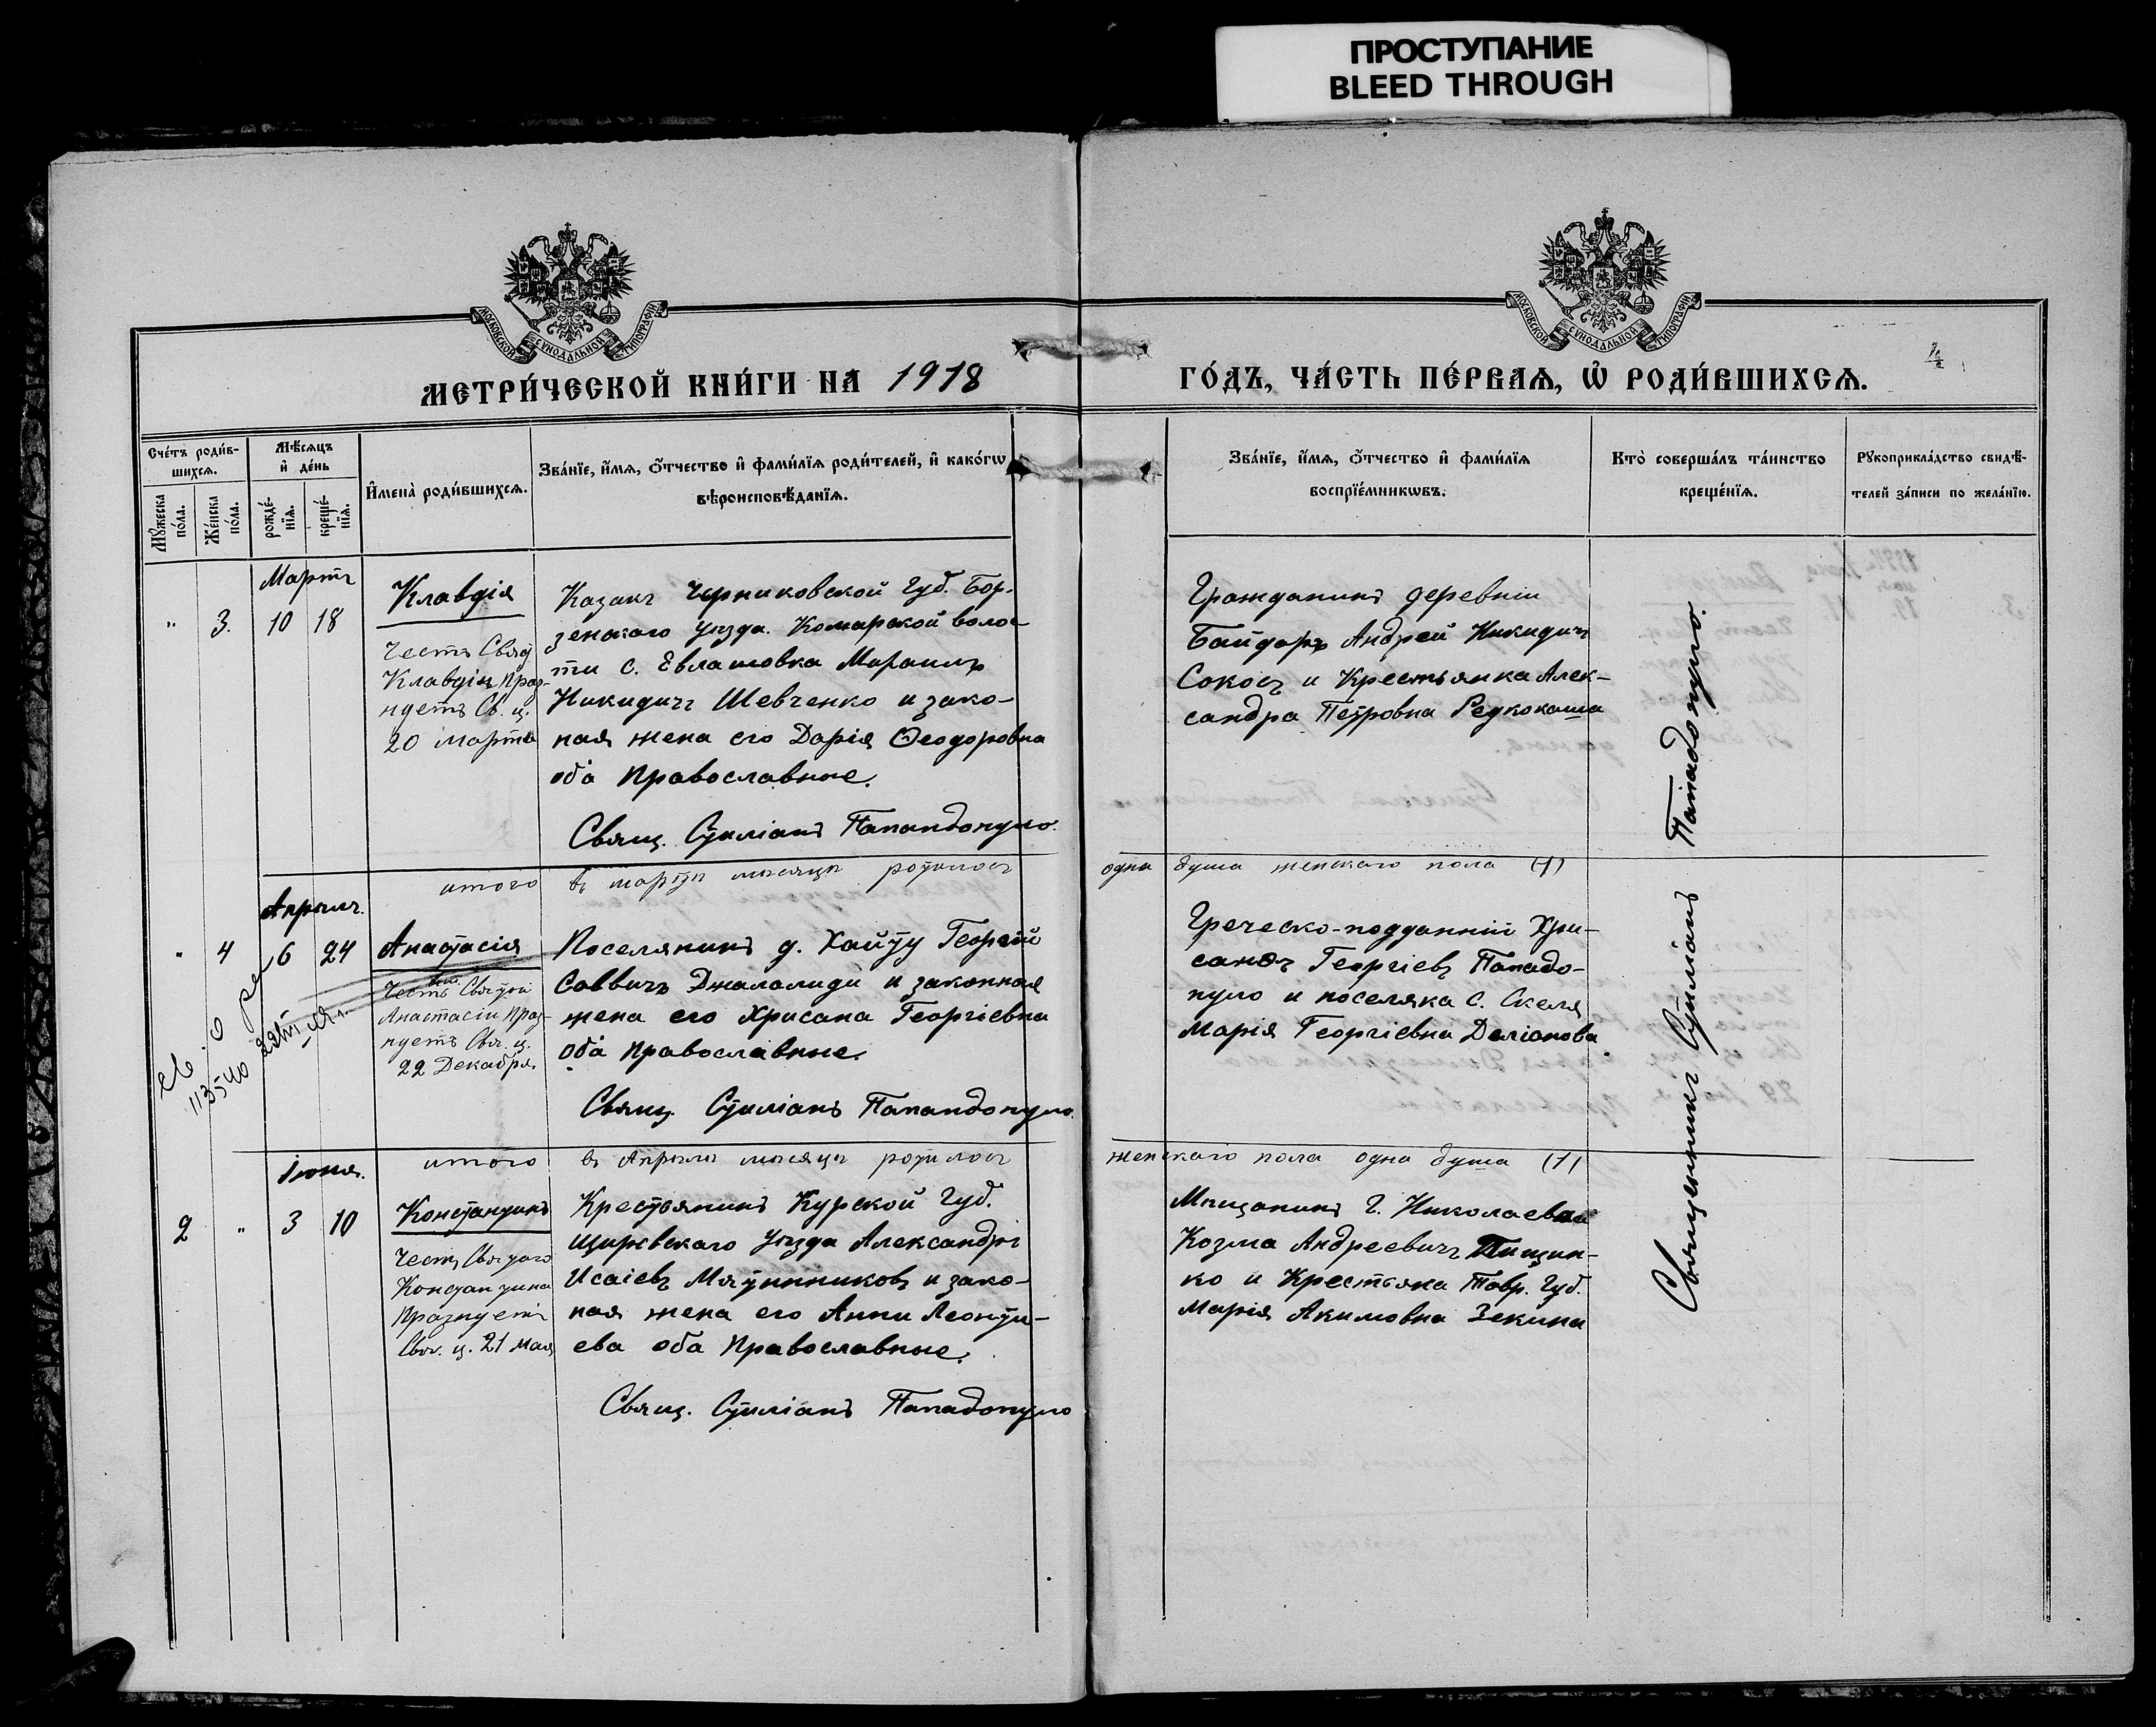 ПРОСТУПАНИЕ
BLEED THROUGH
МОСКОВСКОЙ СѴНОДАЛЬНОЙ ТИПОГРАФІИ
МОСКОВСКОЙ СѴНОДАЛЬНОЙ ТИПОГРАФІИ
МЕТРИ́ЧЕСКОЙ КНИ́ГИ НА 1918
ГО́ДЪ, ЧА́СТЬ ПЕ́РВАѦ, Ѡ҆ РОДИ́ВШИХСѦ.
Сче́тъ роди́в-
шихсѧ.
Мꙋ́жеска по́ла.
Же́нска по́ла.
Мѣ́сѧцъ
и҆ де́нь
рожде́-
нїѧ.
креще́-
нїѧ.
И҆мена̀ роди́вшихсѧ.
Зва́нїе, и҆́мѧ, ѻ҆́тчество и҆ фами́лїѧ роди́телей, и҆ како́гѡ
вѣроисповѣ́данїѧ.
Зва́нїе, и҆́мѧ, ѻ҆́тчество и҆ фами́лїѧ
воспрїе́мникѡвъ.
Кто̀ соверша́лъ та́инство
креще́нїѧ.
Рꙋкоприкла́дство свидѣ́-
телей за́писи по жела́нїю.
Мартъ
" 3. 10 18
Клавдія
Честь Свят
Клавдіи Праз-
нуетъ Св. ц.
20 Марта
Казакъ Черниковской Губ. Бор-
зенскаго Уезда. Комарской волос
ти с. Евлашовка Мараилъ
Никидичъ Шевченко и зако-
ная жена его Дарія Ѳеодоровна
оба Православные.
Свящ. Стиліанъ Папандопуло.
Гражданинъ деревніи
Байдаръ Андрей Никидичъ
Сокосъ и Крестьянка Алек-
сандра Петровна Редкокаша
итого въ марте месяце родилось одна душа женскаго пола (1)
Апрель.
" 4 6 24
Анастасія
Честь Святой
Анастасіи Праз-
нуетъ Свя. ц.
22 Декабря.
Поселянинъ д. Хайту Георгій
Саввичъ Джалалиди и законная
жена его Хрисана Георгіевна
Оба Православные.
Свящ. Стиліанъ Папандопуло.
Греческо-подданній Хри-
санѳъ Георгіевъ Пападо-
пуло и поселяка С. Скеля
Марія Георгіевна Деліонова
113540
итого въ Апреле месяце родилось женскаго пола одна душа (1)
Іюня.
2 " 3 10
Константинъ
Честь Святаго
Константина
Празнуетъ
Свя. ц. 21 Мая
Крестьянинъ Курской Губ.
Щигревскаго Уезда Александръ
Исаіевъ Мятинниковъ и зако-
ная жена его Анни Леонти-
ева оба Православные.
Свящ. Стиліанъ Пападопуло
Мещанинъ Г. Николаева
Козма Андреевичъ Пищин-
ко и Крестьяка Тавр. Губ.
Марія Акимовна Зекина
Священникъ Стиліанъ Пападопуло.